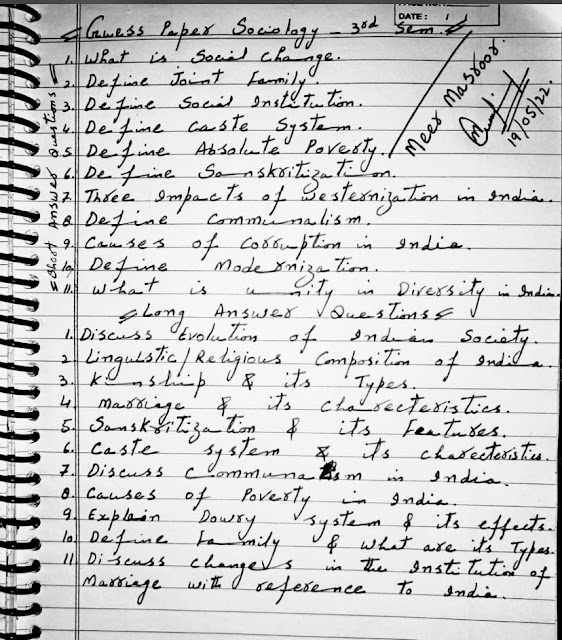 DATE: / /
Guess Paper Sociology - 3rd Sem.
Meer Masroor.
19/05/22.
Short Answer Questions
1. What is Social Change.
2. Define Joint Family.
3. Define Social Institution.
4. Define Caste System.
5. Define Absolute Poverty.
6. Define Sanskritization.
7. Three Impacts of Westernization in India.
8. Define Communalism.
9. Causes of Corruption in India.
10. Define Modernization.
11. What is unity in Diversity in India.
Long Answer Questions
1. Discuss Evolution of Indian Society.
2. Linguistic/Religious Composition of India.
3. Kinship & its Types.
4. Marriage & its charecteristics.
5. Sanskritization & its Features.
6. Caste system & its charecteristics.
7. Discuss Communalism in India.
8. Causes of Poverty in India.
9. Explain Dowry system & its effects.
10. Define Family & What are its Types.
11. Discuss changes in the Institution of
Marriage with reference to India.